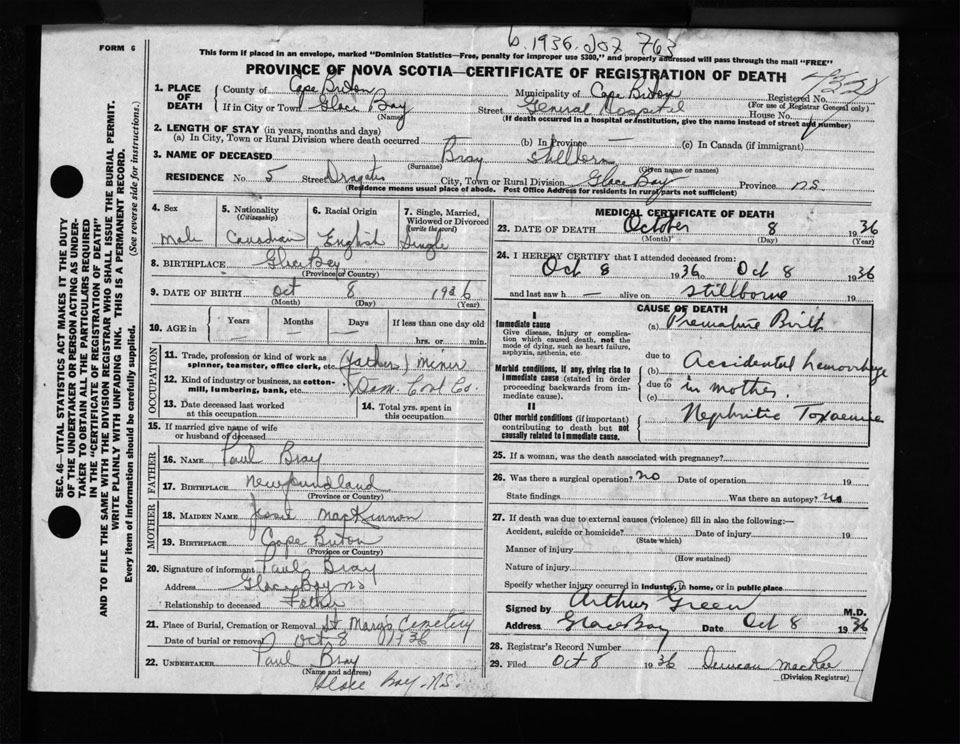 FORM 6
b. 1936. 763
This form if placed in an envelope, marked "Dominion Statistics—Free, penalty for improper use $300," and properly addressed will pass through the mail "FREE"
PROVINCE OF NOVA SCOTIA—CERTIFICATE OF REGISTRATION OF DEATH
1. PLACE OF DEATH
County of Cape Breton Municipality of Cape Breton Registered No.
(For use of Registrar General only)
If in City or Town Glace Bay Street General Hospital House No.
(Name) (If death occurred in a hospital or institution, give the name instead of street and number)
2. LENGTH OF STAY (in years, months and days)
(a) In City, Town or Rural Division where death occurred (b) In Province — (c) In Canada (if immigrant)
3. NAME OF DECEASED Bray Stillborn
(Surname) (Given name or names)
RESIDENCE No. 5 Street City, Town or Rural Division Glace Bay Province N.S.
(Residence means usual place of abode. Post Office Address for residents in rural parts not sufficient)
4. Sex
Male
5. Nationality (Citizenship)
Canadian
6. Racial Origin
English
7. Single, Married, Widowed or Divorced (write the word)
Single
8. BIRTHPLACE Glace Bay
(Province or Country)
9. DATE OF BIRTH Oct 8 1936
(Month) (Day) (Year)
10. AGE in Years Months Days If less than one day old
— — — hrs. or min.
OCCUPATION
11. Trade, profession or kind of work as spinner, teamster, office clerk, etc. (Father) Miner
12. Kind of industry or business, as cotton-mill, lumbering, bank, etc. Dom. Coal Co.
13. Date deceased last worked at this occupation
14. Total yrs. spent in this occupation
15. If married give name of wife or husband of deceased
FATHER
16. NAME Paul Bray
17. BIRTHPLACE Newfoundland
(Province or Country)
MOTHER
18. MAIDEN NAME Jessie MacKinnon
19. BIRTHPLACE Cape Breton
(Province or Country)
20. Signature of informant Paul Bray
Address Glace Bay NS
Relationship to deceased Father
21. Place of Burial, Cremation or Removal St Marys Cemetery
Date of burial or removal Oct 8 1936
22. UNDERTAKER Paul Bray
(Name and address)
Glace Bay. N.S.
MEDICAL CERTIFICATE OF DEATH
23. DATE OF DEATH October 8 1936
(Month) (Day) (Year)
24. I HEREBY CERTIFY that I attended deceased from:
Oct 8 1936 to Oct 8 1936
and last saw h — alive on Stillborne 19
CAUSE OF DEATH
I
Immediate cause
Give disease, injury or complication which caused death, not the mode of dying, such as heart failure, asphyxia, asthenia, etc.
(a) Premature Birth
due to
Morbid conditions, if any, giving rise to immediate cause (stated in order proceeding backwards from immediate cause).
(b) Accidental hemorrhage
due to in mother.
(c)
II
Other morbid conditions (if important) contributing to death but not causally related to immediate cause.
Nephritic Toxaemia
25. If a woman, was the death associated with pregnancy?
26. Was there a surgical operation? no Date of operation 19
State findings Was there an autopsy? no
27. If death was due to external causes (violence) fill in also the following:—
Accident, suicide or homicide? Date of injury 19
(State which)
Manner of injury
(How sustained)
Nature of injury
Specify whether injury occurred in industry, in home, or in public place
Signed by Arthur Green M.D.
Address Glace Bay Date Oct 8 1936
28. Registrar's Record Number
29. Filed Oct 8 1936 Duncan MacRae
(Division Registrar)
SEC. 46—VITAL STATISTICS ACT MAKES IT THE DUTY
OF THE UNDERTAKER OR PERSON ACTING AS UNDER-
TAKER TO OBTAIN ALL THE PARTICULARS REQUIRED
IN THE "CERTIFICATE OF REGISTRATION OF DEATH"
AND TO FILE THE SAME WITH THE DIVISION REGISTRAR WHO SHALL ISSUE THE BURIAL PERMIT.
WRITE PLAINLY WITH UNFADING INK. THIS IS A PERMANENT RECORD.
Every item of information should be carefully supplied. (See reverse side for instructions.)